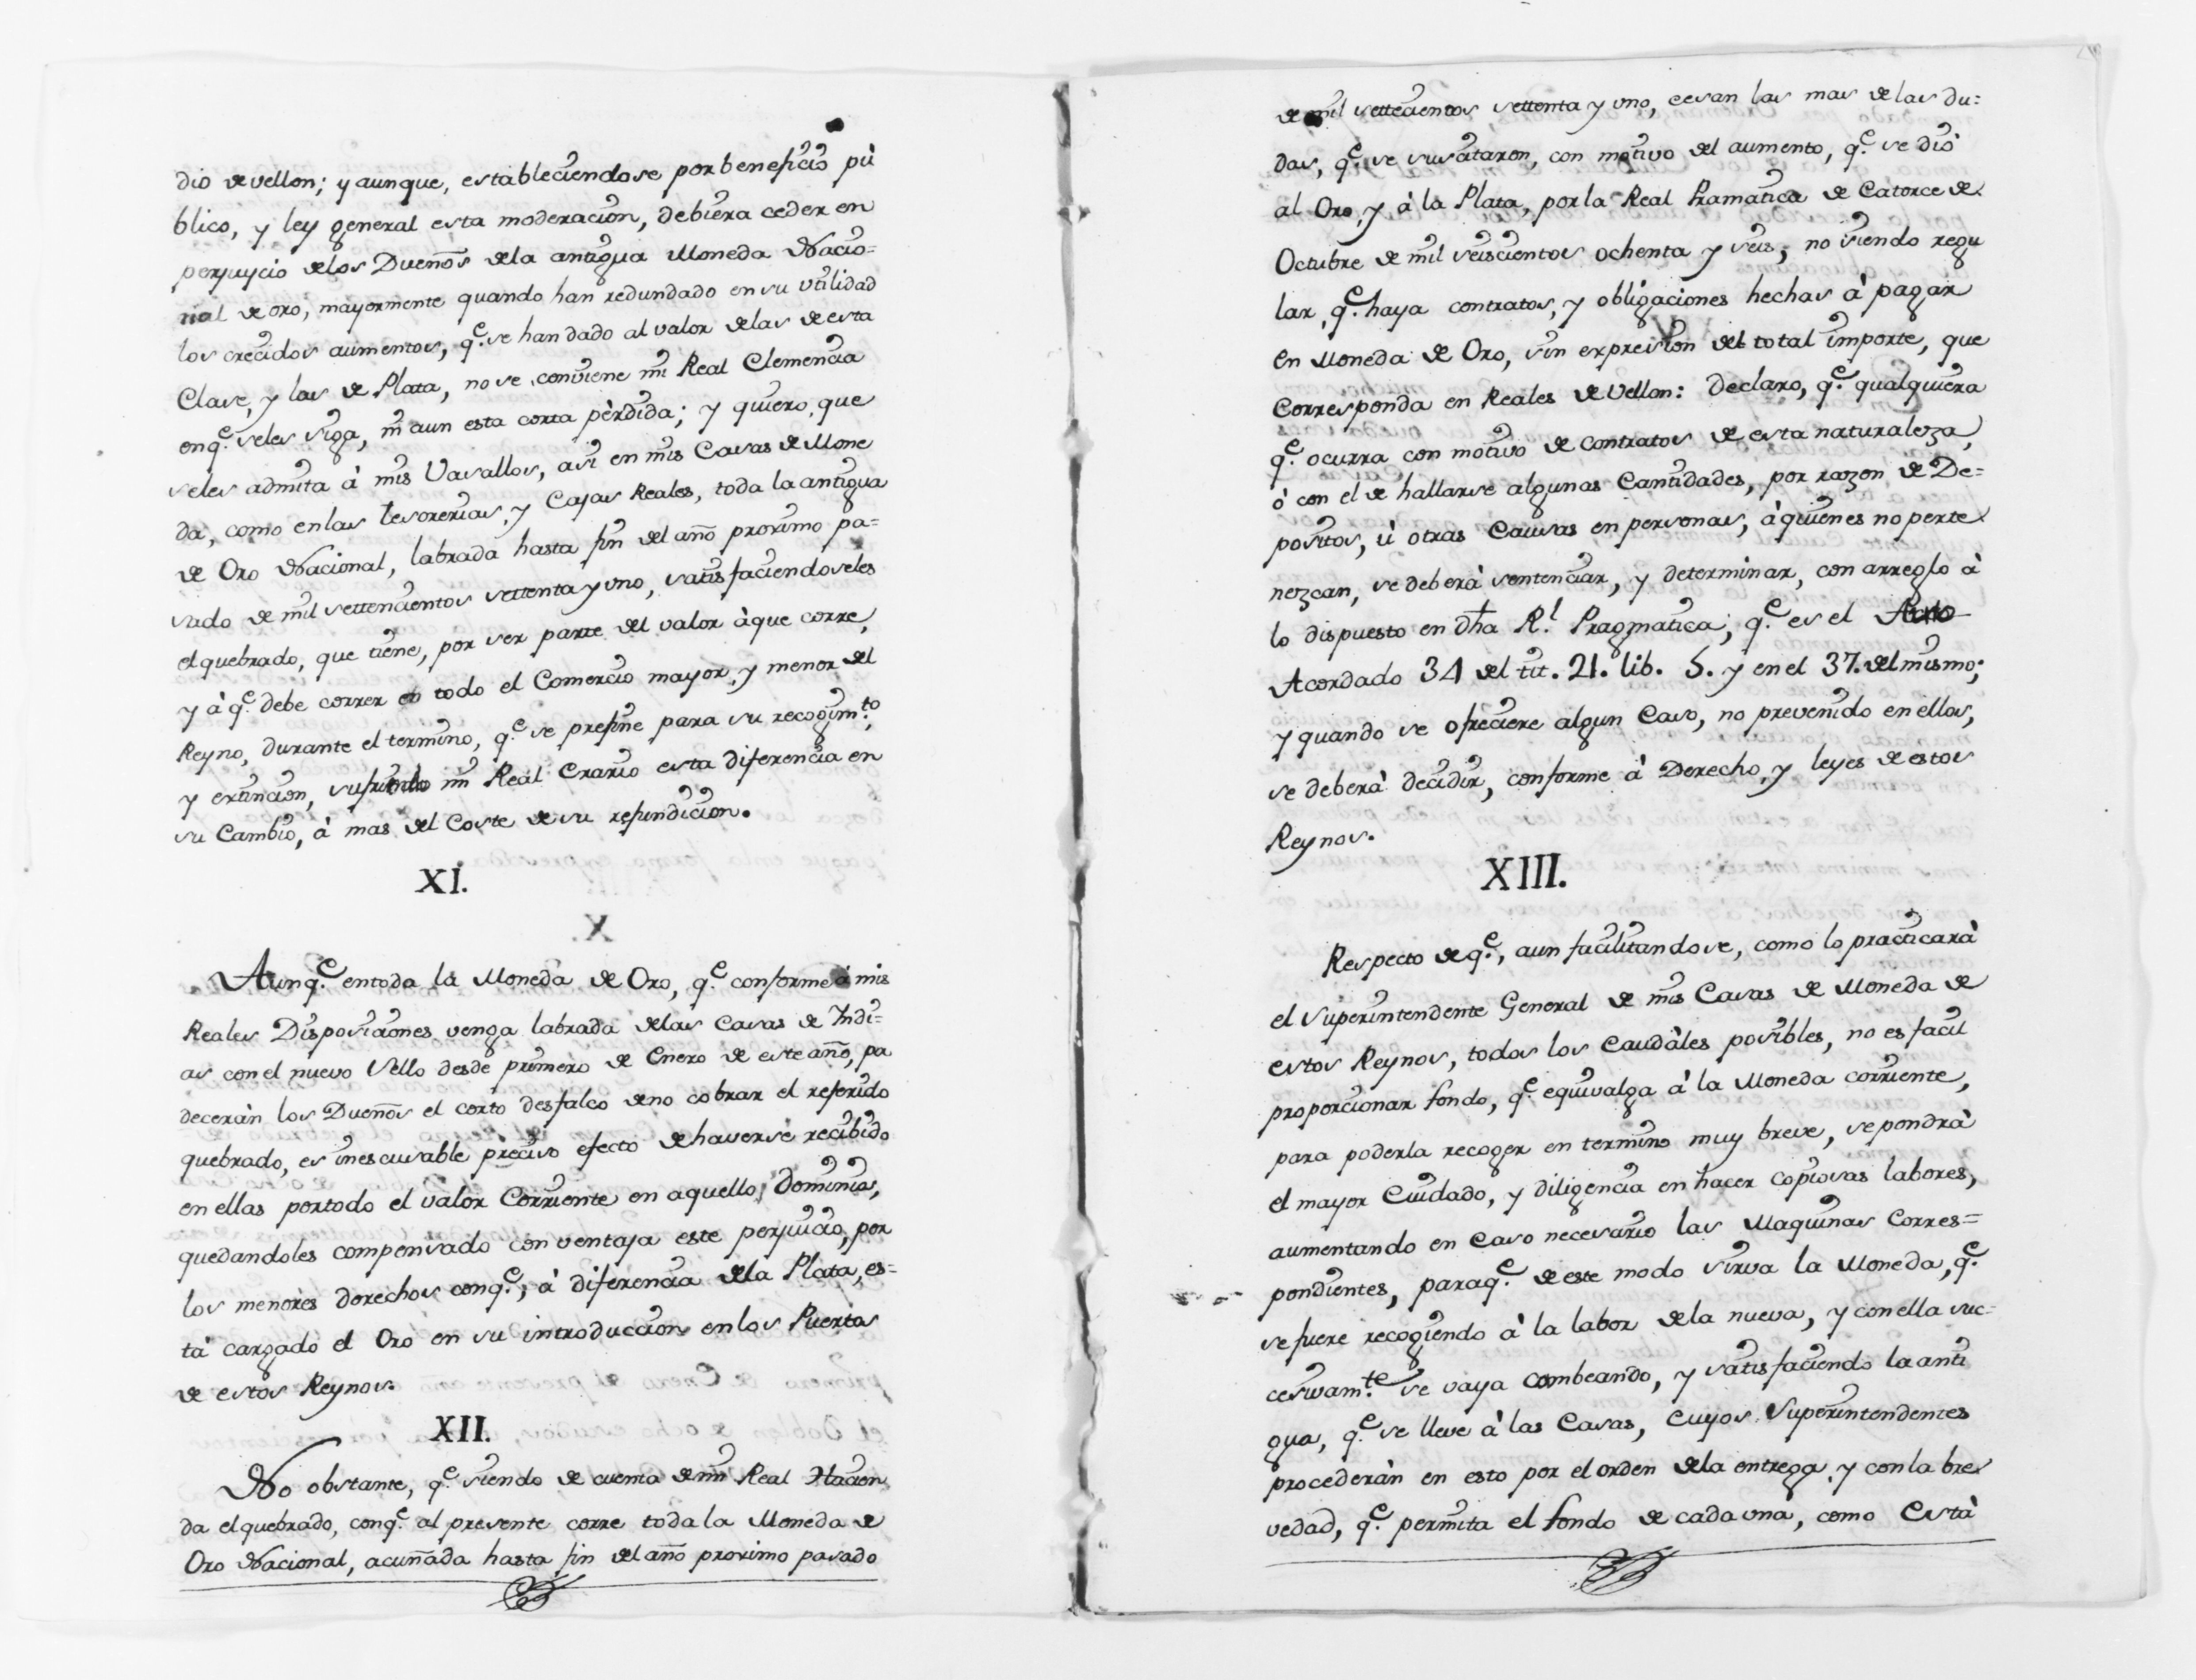 dio de vellon; y aunque, estableciendose por beneficio pù
blico, y ley general esta moderacion, debiera ceder en
perjuycio delos Dueños dela antigua Moneda Nacio=
nal de oro, mayormente quando han redundado en su utilidad
los crecidos aumentos, q.e se han dado al valor delas de esta
Clase, y las de Plata, no se conviene mi Real Clemencia
enq.e seles siga, ni aun esta corta pèrdida; y quiero, que
seles admita à mis Vasallos, asi en mis Casas de Mone
da, como enlas tesorerias, y Cajas Reales, toda la antigua
de Oro Nacional, labrada hasta fin del año proximo pa=
sado de mil settencientos settenta y uno, satisfaciendoseles
el quebrado, que tiene, por ser parte del valor àque corre,
y à q.e debe correr en todo el Comercio mayor, y menor del
Reyno, durante el termino, q.e se prefine para su recogim.to,
y extincion, sufriendo mi Real Erario esta diferencia en
su Cambio, à mas del Coste de su refundicion.
XI.
X.
Aunq.e entoda la Moneda de Oro, q.e conforme à mis
Reales Disposiciones venga labrada delas Casas de Indi=
as con el nuevo Sello desde primero de Enero de este año, pa
deceràn los Dueños el corto desfalco deno cobrar el referido
quebrado, es inescusable preciso efecto de haverse recibido
en ellas portodo el valor Corriente en aquellos Dominios,
quedandoles compensado con ventaja este perjuicio, por
los menores derechos conq.e, à diferencia dela Plata, es=
tà cargado el Oro en su introduccion enlos Puertos
de estos Reynos.
XII.
No obstante, q.e siendo de cuenta demi Real Hacien
da el quebrado, conq.e al presente corre toda la Moneda de
Oro Nacional, acuñada hasta fin del año proximo pasado
de mil settecientos settenta y uno, cesan las mas delas du=
das, q.e se suscitaron, con motivo del aumento, q.e se diò
al Oro, y à la Plata, porla Real Pramatica de Catorce de
Octubre de mil seiscientos ochenta y seis; no siendo regu
lar, q.e haya contratos, y obligaciones hechas à pagar
en Moneda de Oro, sin expresion del total importe, que
Corresponda en Reales de Vellon: Declaro, q.e qualquiera
q.e ocurra con motivo de contratos de esta naturaleza,
ò con el de hallarse algunas Cantidades, por razon de De=
positos, ù otras Causas en personas, à quienes no perte
nezcan, se deberà sentenciar, y determinar, con arreglo à
lo dispuesto en dha R.l Pragmatica; q.e es el Auto
Acordado 34 del tit. 21. lib. 5. y en el 37. del mismo;
y quando se ofreciere algun Caso, no prevenido en ellos,
se deberà decidir, conforme à Derecho, y leyes de estos
Reynos.
XIII.
Respecto de q.e, aun facilitandose, como lo practicarà
el Superintendente General de mis Casas de Moneda de
estos Reynos, todos los Caudàles posibles, no es facil
proporcionar fondo, q.e equivalga à la Moneda corriente,
para poderla recoger en termino muy breve, se pondrà
el mayor Cuidado, y diligencia en hacer copiosas labores,
aumentando en Caso necesario las Maquinas Corres=
pondientes, paraq.e de este modo sirva la Moneda, q.e
se fuere recogiendo à la labor dela nueva, y con ella suc=
cesivam.te se vaya combeando, y satisfaciendo la anti
gua, q.e se lleve à las Casas, cuyos Superintendentes
procederàn en esto por el orden dela entrega, y con la bre
vedad, q.e permita el fondo de cada una, como està